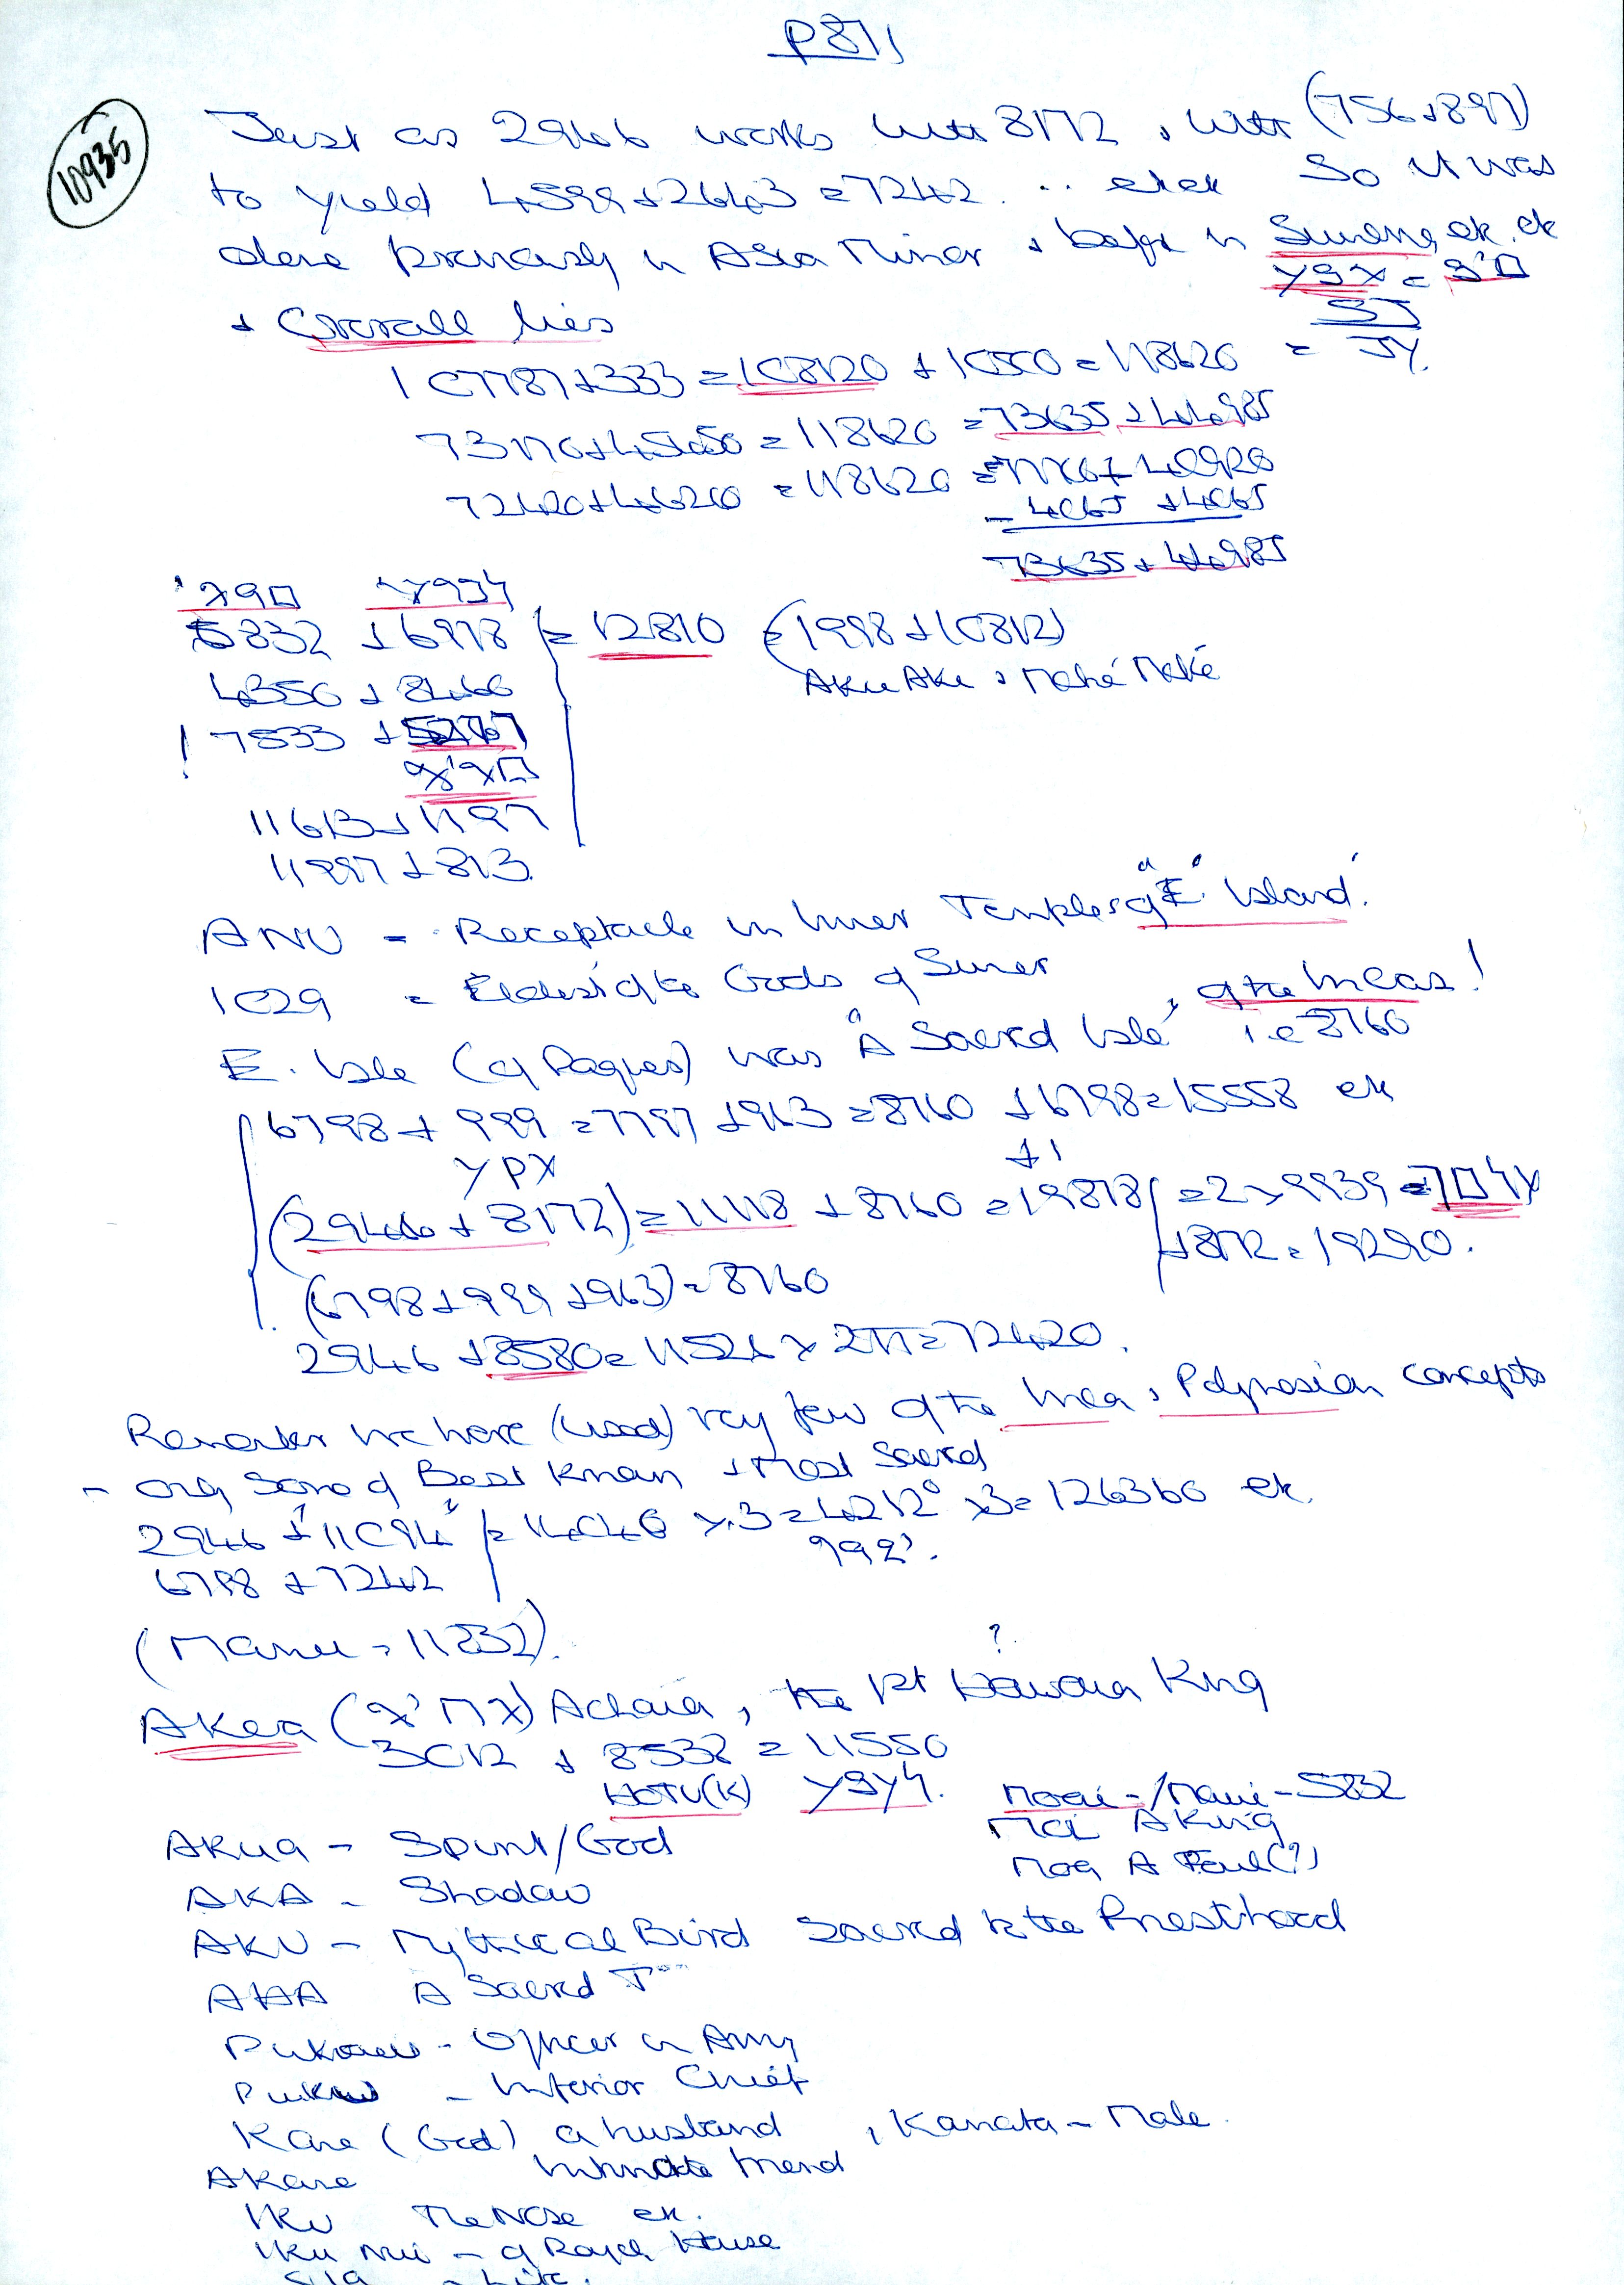 P811
10935
Just as 2946 works with 8172 , with (756+897)
to yield 4599+2643 =7242. .. etc So it was
done previously in Asia Minor +
+ Overall lies
107787+333 =108120 + 10500 =118620 =
73170+45450 =118620 =73635 + 44985
72420+46200 =118620 =77700+ 40920
-4065 +4065
73635 + 44985
5832 +6978 = 12810 (1998 +10812)
4350 + 8460 Aku Aku , Maké Maké
! 7533 +5277
11613+1197
11997 +813
ANU - Receptacle in Inner Temples of "E" Island.
1029 = Eldest of the Gods of Sumer
E. Isle (of Paques) was "A Sacred Isle" , of the Incas!
i.e 8760
6798+ 999 =7797 +963 =8760 +6798=15558 etc
+1
(2946 + 8172) =11118 +8760 =19878 =2 x 9939
+8172 = 19290.
(6798+999 +963) =8760
2946 +8580= 11526 x 2π=72420.
Remember we have (used) very few of the Inca , Polynesian concepts
- only some of Best known + Most Sacred
2946 + "11094" = 14040 x 3 =42120 x3= 126360 etc.
6798 +7242
(Manu = 11832).
Akea ( ) Achaia, the 1st Hawaian King
?
3012 + 8532 = 11550
HOTU(K)
Moai - /Maui - 5832
Moi A King
Moa A Fowl(?)
Akua - Spirit/God
AKA - Shadow
AKU - Mythical Bird Sacred to the Priesthood
AHA A Sacred T
Officer in Army
- Inferior Chief
Kane (God) a husband , Kanata - Male.
Akane Intimate Friend
IKU The Nose etc.
Iku Nui - of Royal House